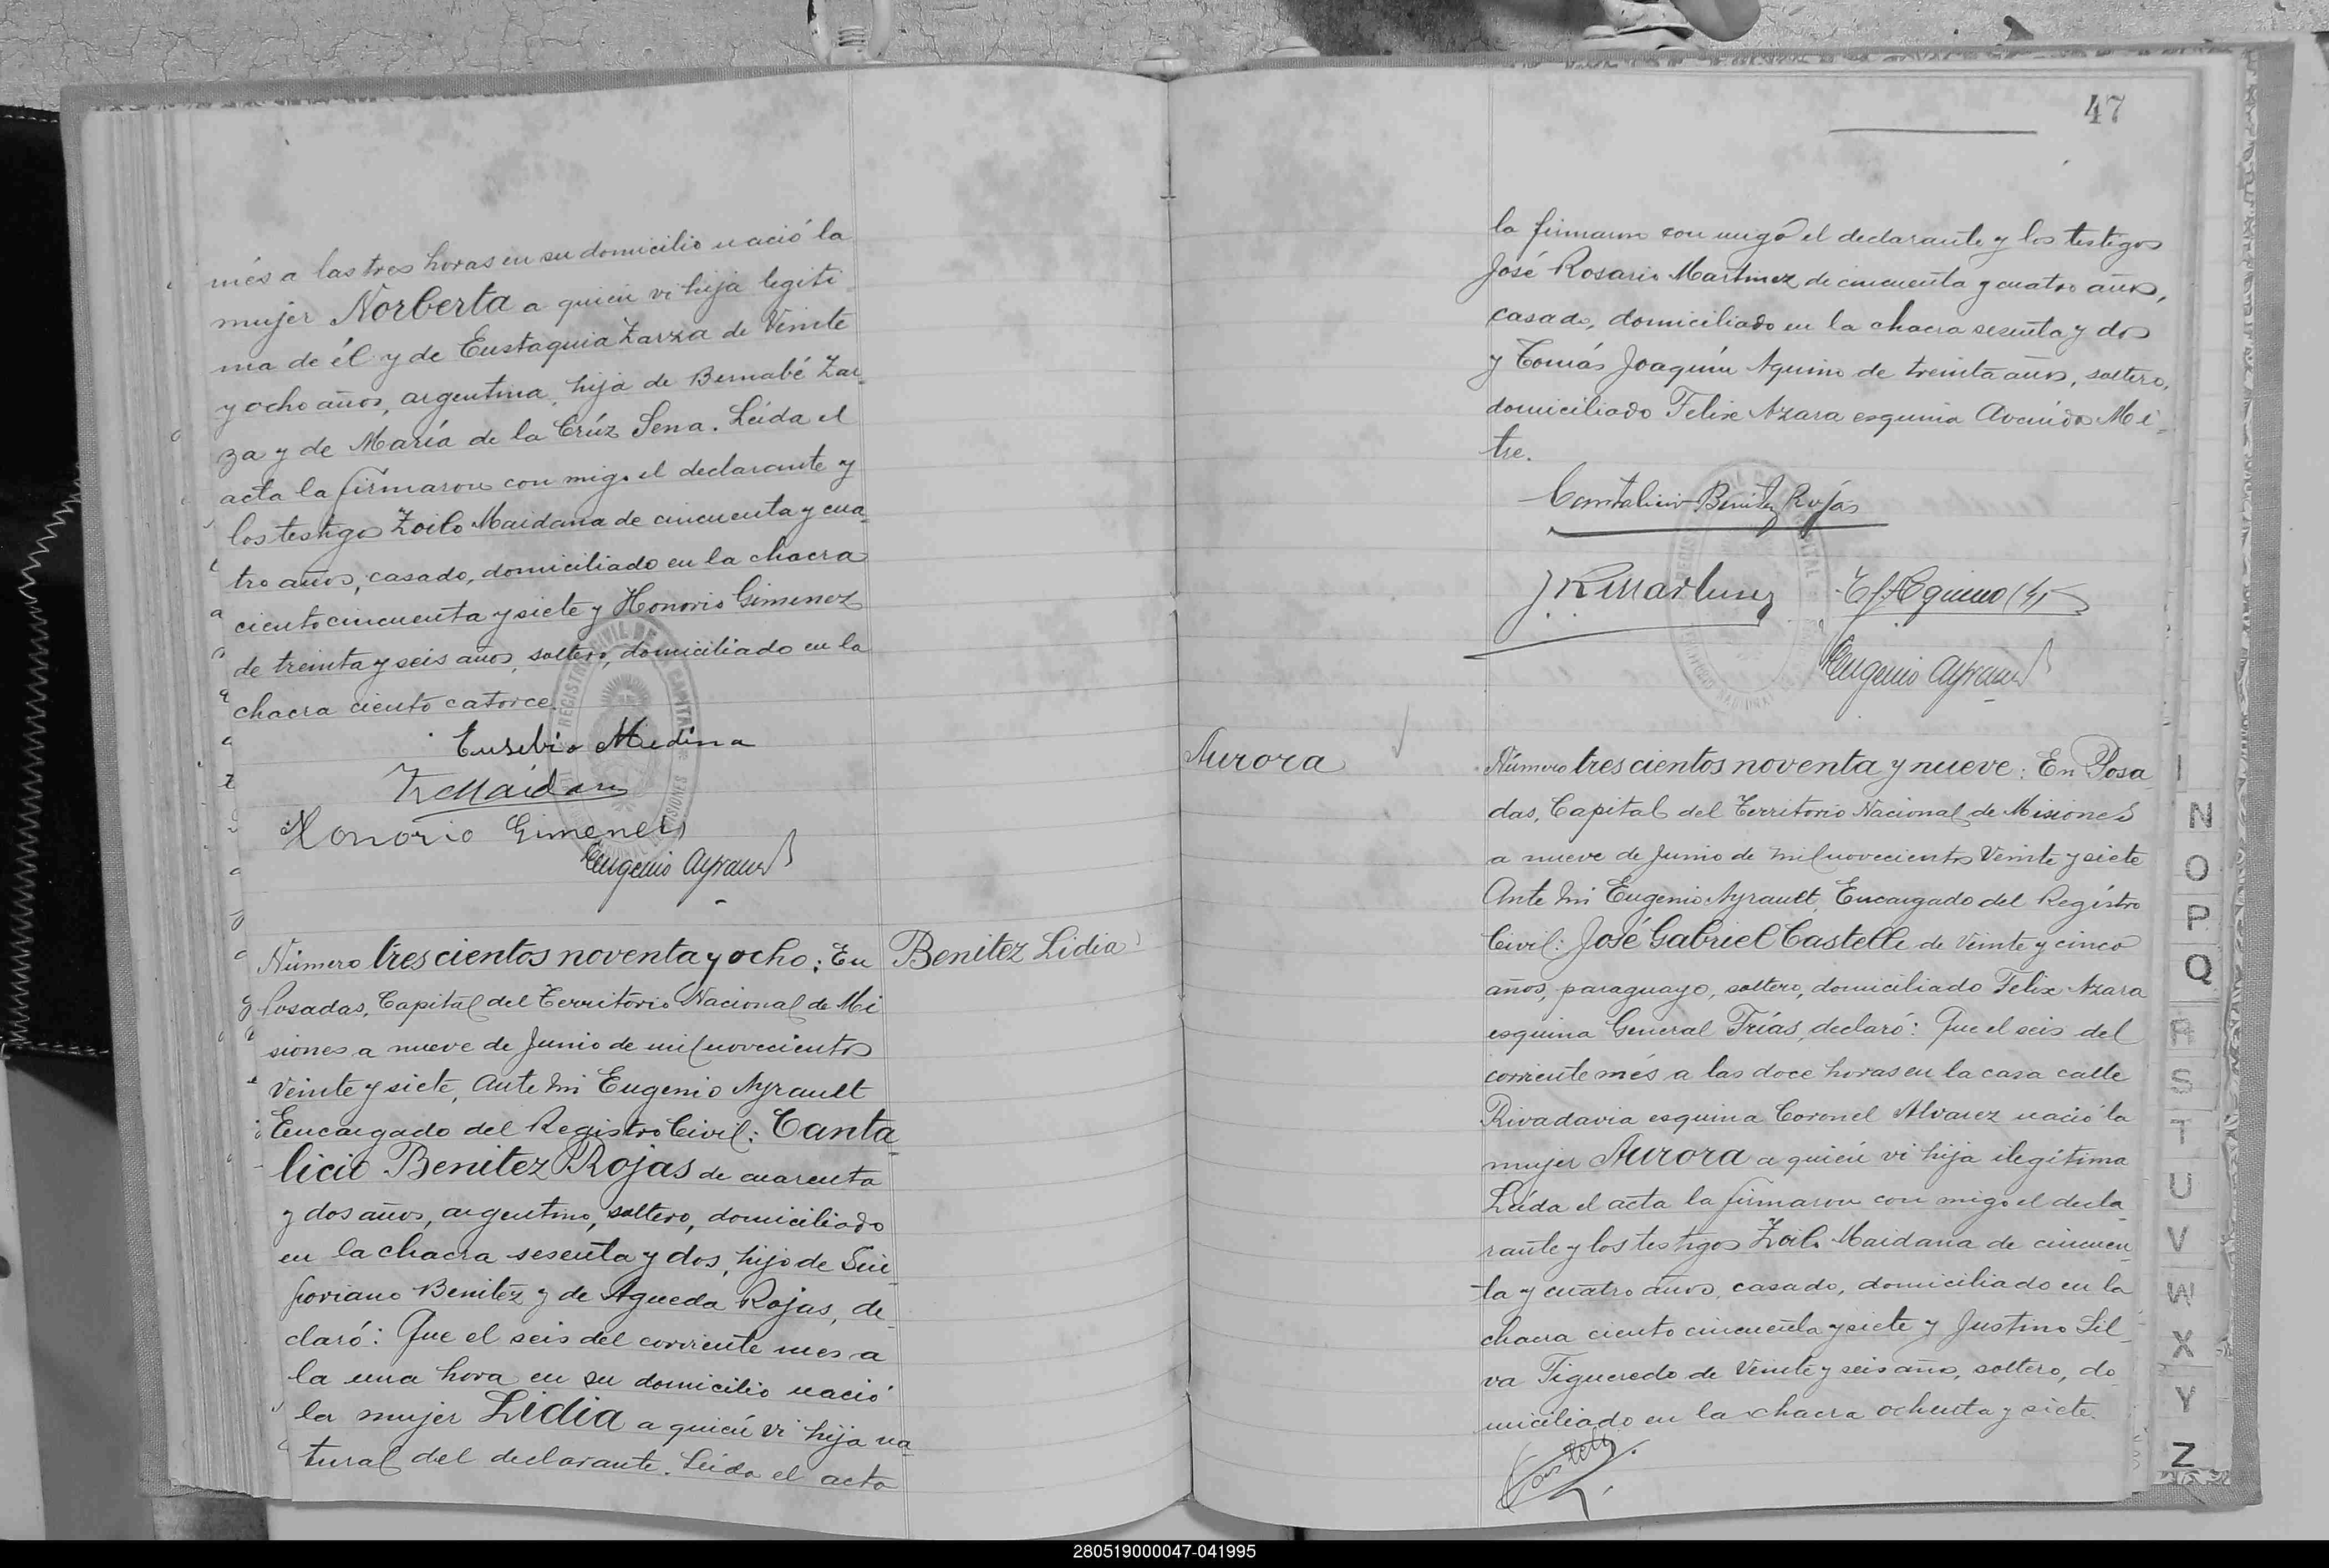 més a las tres horas en su domicilio nació la
mujer Norberta a quien vi hija legiti
ma de él y de Eustaquia Zarza de Veinte
y ocho años, argentina, hija de Bernabé Zar
za y de María de la Crúz Sena. Leida el
acta la firmaron con migo el declarante y
los testigos Zoilo Maidana de cincuenta y cua
tro años, casado, domiciliado en la chacra
ciento cincuenta y siete y Honorio Gimenez
de treinta y seis años, soltero, domiciliado en la
chacra ciento catorce.
Eusebio Medina
Z Maidana
Honorio Gimenez
Eugenio Ayrault
Número trescientos noventa y ocho: En
Benitez Lidia
Posadas, Capital del Territorio Nacional de Mi
siones a nueve de Junio de mil novecientos
Veinte y siete, Ante mi Eugenio Ayrault
Encargado del Registro Civil: Canta
licio Benitez Rojas de cuarenta
y dos años, argentino, soltero, domiciliado
en la chacra sesenta y dos, hijo de Sin
foriano Benitez y de Agueda Rojas, de
claró: Que el seis del corriente mes a
la una hora en su domicilio nació
la mujer Lidia a quien vi hija na
tural del declarante. Leida el acta
47
la firmaron con migo el declarante y los testigos
José Rosario Martinez de cincuenta y cuatro años,
casado, domiciliado en la chacra sesenta y dos
y Tomás Joaquín Aquino de treinta años, soltero,
domiciliado Felix Azara esquina Avenida Mi
tre.
Cantalicio Benitez Rojas
J R Martinez T J Aquino (h)
Eugenio Ayrault
Aurora
Número trescientos noventa y nueve: En Posa
das, Capital del Territorio Nacional de Misiones
a nueve de Junio de mil novecientos Veinte y siete
Ante mi Eugenio Ayrault, Encargado del Registro
Civil: José Gabriel Castelli de Veinte y cinco
años, paraguayo, soltero, domiciliado Felix Azara
esquina General Frías, declaró: Que el seis del
corriente més a las doce horas en la casa calle
Rivadavia esquina Coronel Alvarez nació la
mujer Aurora a quien vi hija ilegítima
Leida el acta la firmaron con migo el decla
rante y los testigos Zoilo Maidana de cincuen
ta y cuatro años, casado, domiciliado en la
chacra ciento cincuenta y siete y Justino Sil
va Figueredo de Veinte y seis años, soltero, do
miciliado en la chacra ochenta y siete.
Castelli
N
O
P
Q
R
S
T
U
V
W
X
Y
Z
280519000047-041995